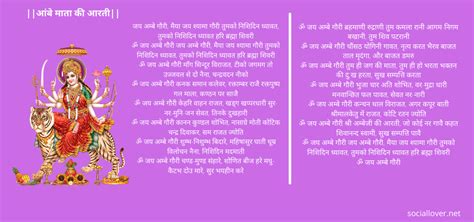 ||आंबे माता की आरती||
जय अम्बे गौरी, मैया जय श्यामा गौरी तुमको निशिदिन ध्यावत,
तुमको निशिदिन ध्यावत हरि ब्रह्मा शिवरी
ॐ जय अम्बे गौरी जय अम्बे गौरी, मैया जय श्यामा गौरी तुमको
निशिदिन ध्यावत, तुमको निशिदिन ध्यावत हरि ब्रह्मा शिवरी
ॐ जय अम्बे गौरी माँग सिन्दूर विराजत, टीको जगमग तो
उज्जवल से दो नैना, चन्द्रवदन नीको
ॐ जय अम्बे गौरी कनक समान कलेवर, रक्ताम्बर राजै रक्तपुष्प
गल माला, कण्ठन पर साजै
ॐ जय अम्बे गौरी केहरि वाहन राजत, खड्ग खप्परधारी सुर-
नर-मुनि जन सेवत, तिनके दुखहारी
ॐ जय अम्बे गौरी कानन कुण्डल शोभित, नासाग्रे मोती कोटिक
चन्द्र दिवाकर, सम राजत ज्योति
ॐ जय अम्बे गौरी शुम्भ-निशुम्भ बिदारे, महिषासुर घाती धूम्र
विलोचन नैना, निशिदिन मदमाती
ॐ जय अम्बे गौरी चण्ड-मुण्ड संहारे, शोणित बीज हरे मधु-
कैटभ दोउ मारे, सुर भयहीन करे
ॐ जय अम्बे गौरी ब्रहमाणी रुद्राणी तुम कमला रानी आगम निगम
बखानी, तुम शिव पटरानी
ॐ जय अम्बे गौरी चौंसठ योगिनी गावत, नृत्य करत भैरव बाजत
ताल मृदंगा, और बाजत डमरु
ॐ जय अम्बे गौरी तुम ही जग की माता, तुम ही हो भरता भक्तन
की दुःख हरता, सुख सम्पत्ति करता
ॐ जय अम्बे गौरी भुजा चार अति शोभित, वर मुद्रा धारी
मनवान्छित फल पावत, सेवत नर-नारी
ॐ जय अम्बे गौरी कन्चन थाल विराजत, अगर कपूर बाती
श्रीमालकेतु में राजत, कोटि रतन ज्योति
ॐ जय अम्बे गौरी श्री अम्बेजी की आरती, जो कोई नर गावै कहत
शिवानन्द स्वामी, सुख सम्पत्ति पावै
ॐ जय अम्बे गौरी जय अम्बे गौरी, मैया जय श्यामा गौरी तुमको
निशिदिन ध्यावत, तुमको निशिदिन ध्यावत हरि ब्रह्मा शिवरी
ॐ जय अम्बे गौरी
sociallover.net